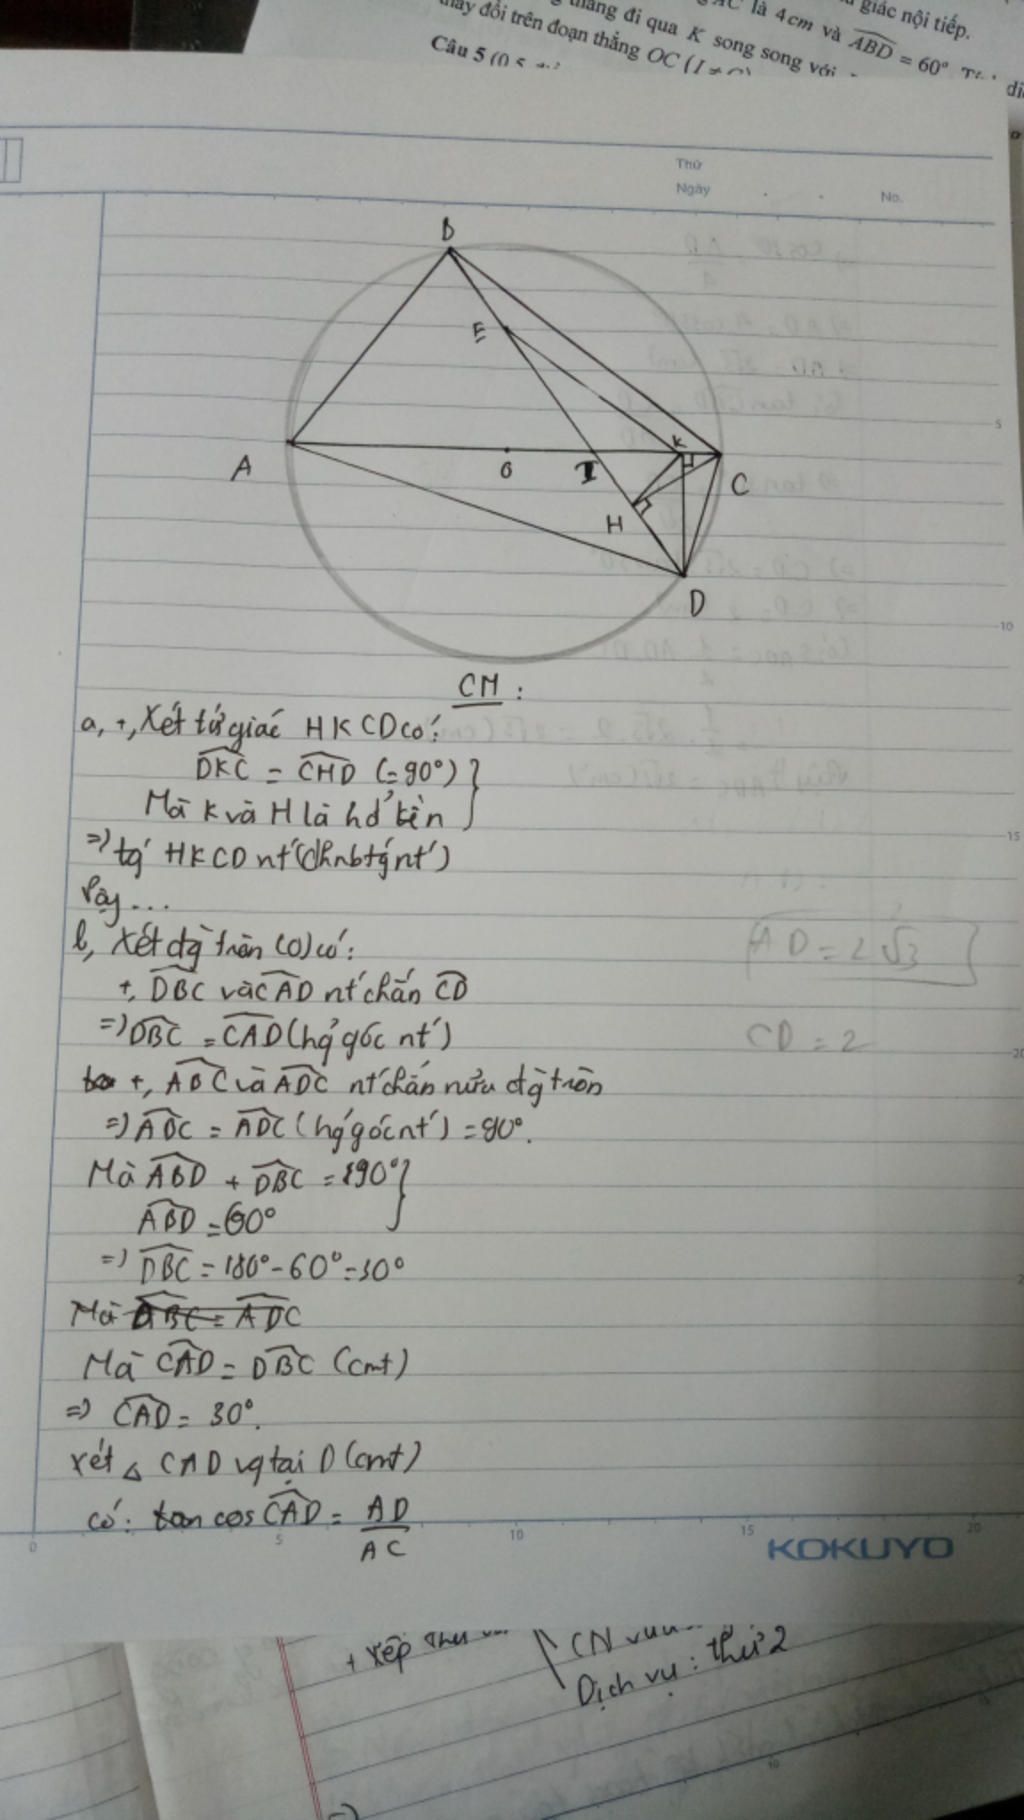 giác nội tiếp.
AC là 4cm và ABD = 60°
thẳng đi qua K song song với
thay đổi trên đoạn thẳng OC (I ≠ C)
Câu 5 (0,5
Thứ
Ngày
No.
B
E
A
O
I
K
C
H
D
5
10
15
CM :
a, +, Xét tứ giác HKCD có:
DKC = CHD (=90°)
Mà K và H là hđ kền
=) tg HKCD nt (dhnbtgnt)
Vậy...
b, Xét đg tròn (O) có:
+, DBC và CAD nt chắn CD
=) DBC = CAD (hq góc nt)
+, ABC và ADC nt chắn nửa đg tròn
=) ABC = ADC (hq góc nt) = 90°.
Mà ABD + DBC = 190°
ABD = 60°
=) DBC = 180° - 60° = 30°
Mà ABC = ADC
Mà CAD = DBC (cmt)
=) CAD = 30°.
xét △ CAD vg tại D (cmt)
có: tan cos CAD = AD
AC
AD = 2√3
CD = 2
0
5
10
15
20
KOKUYO
+ xếp thứ
CN
Dịch vụ : thứ 2